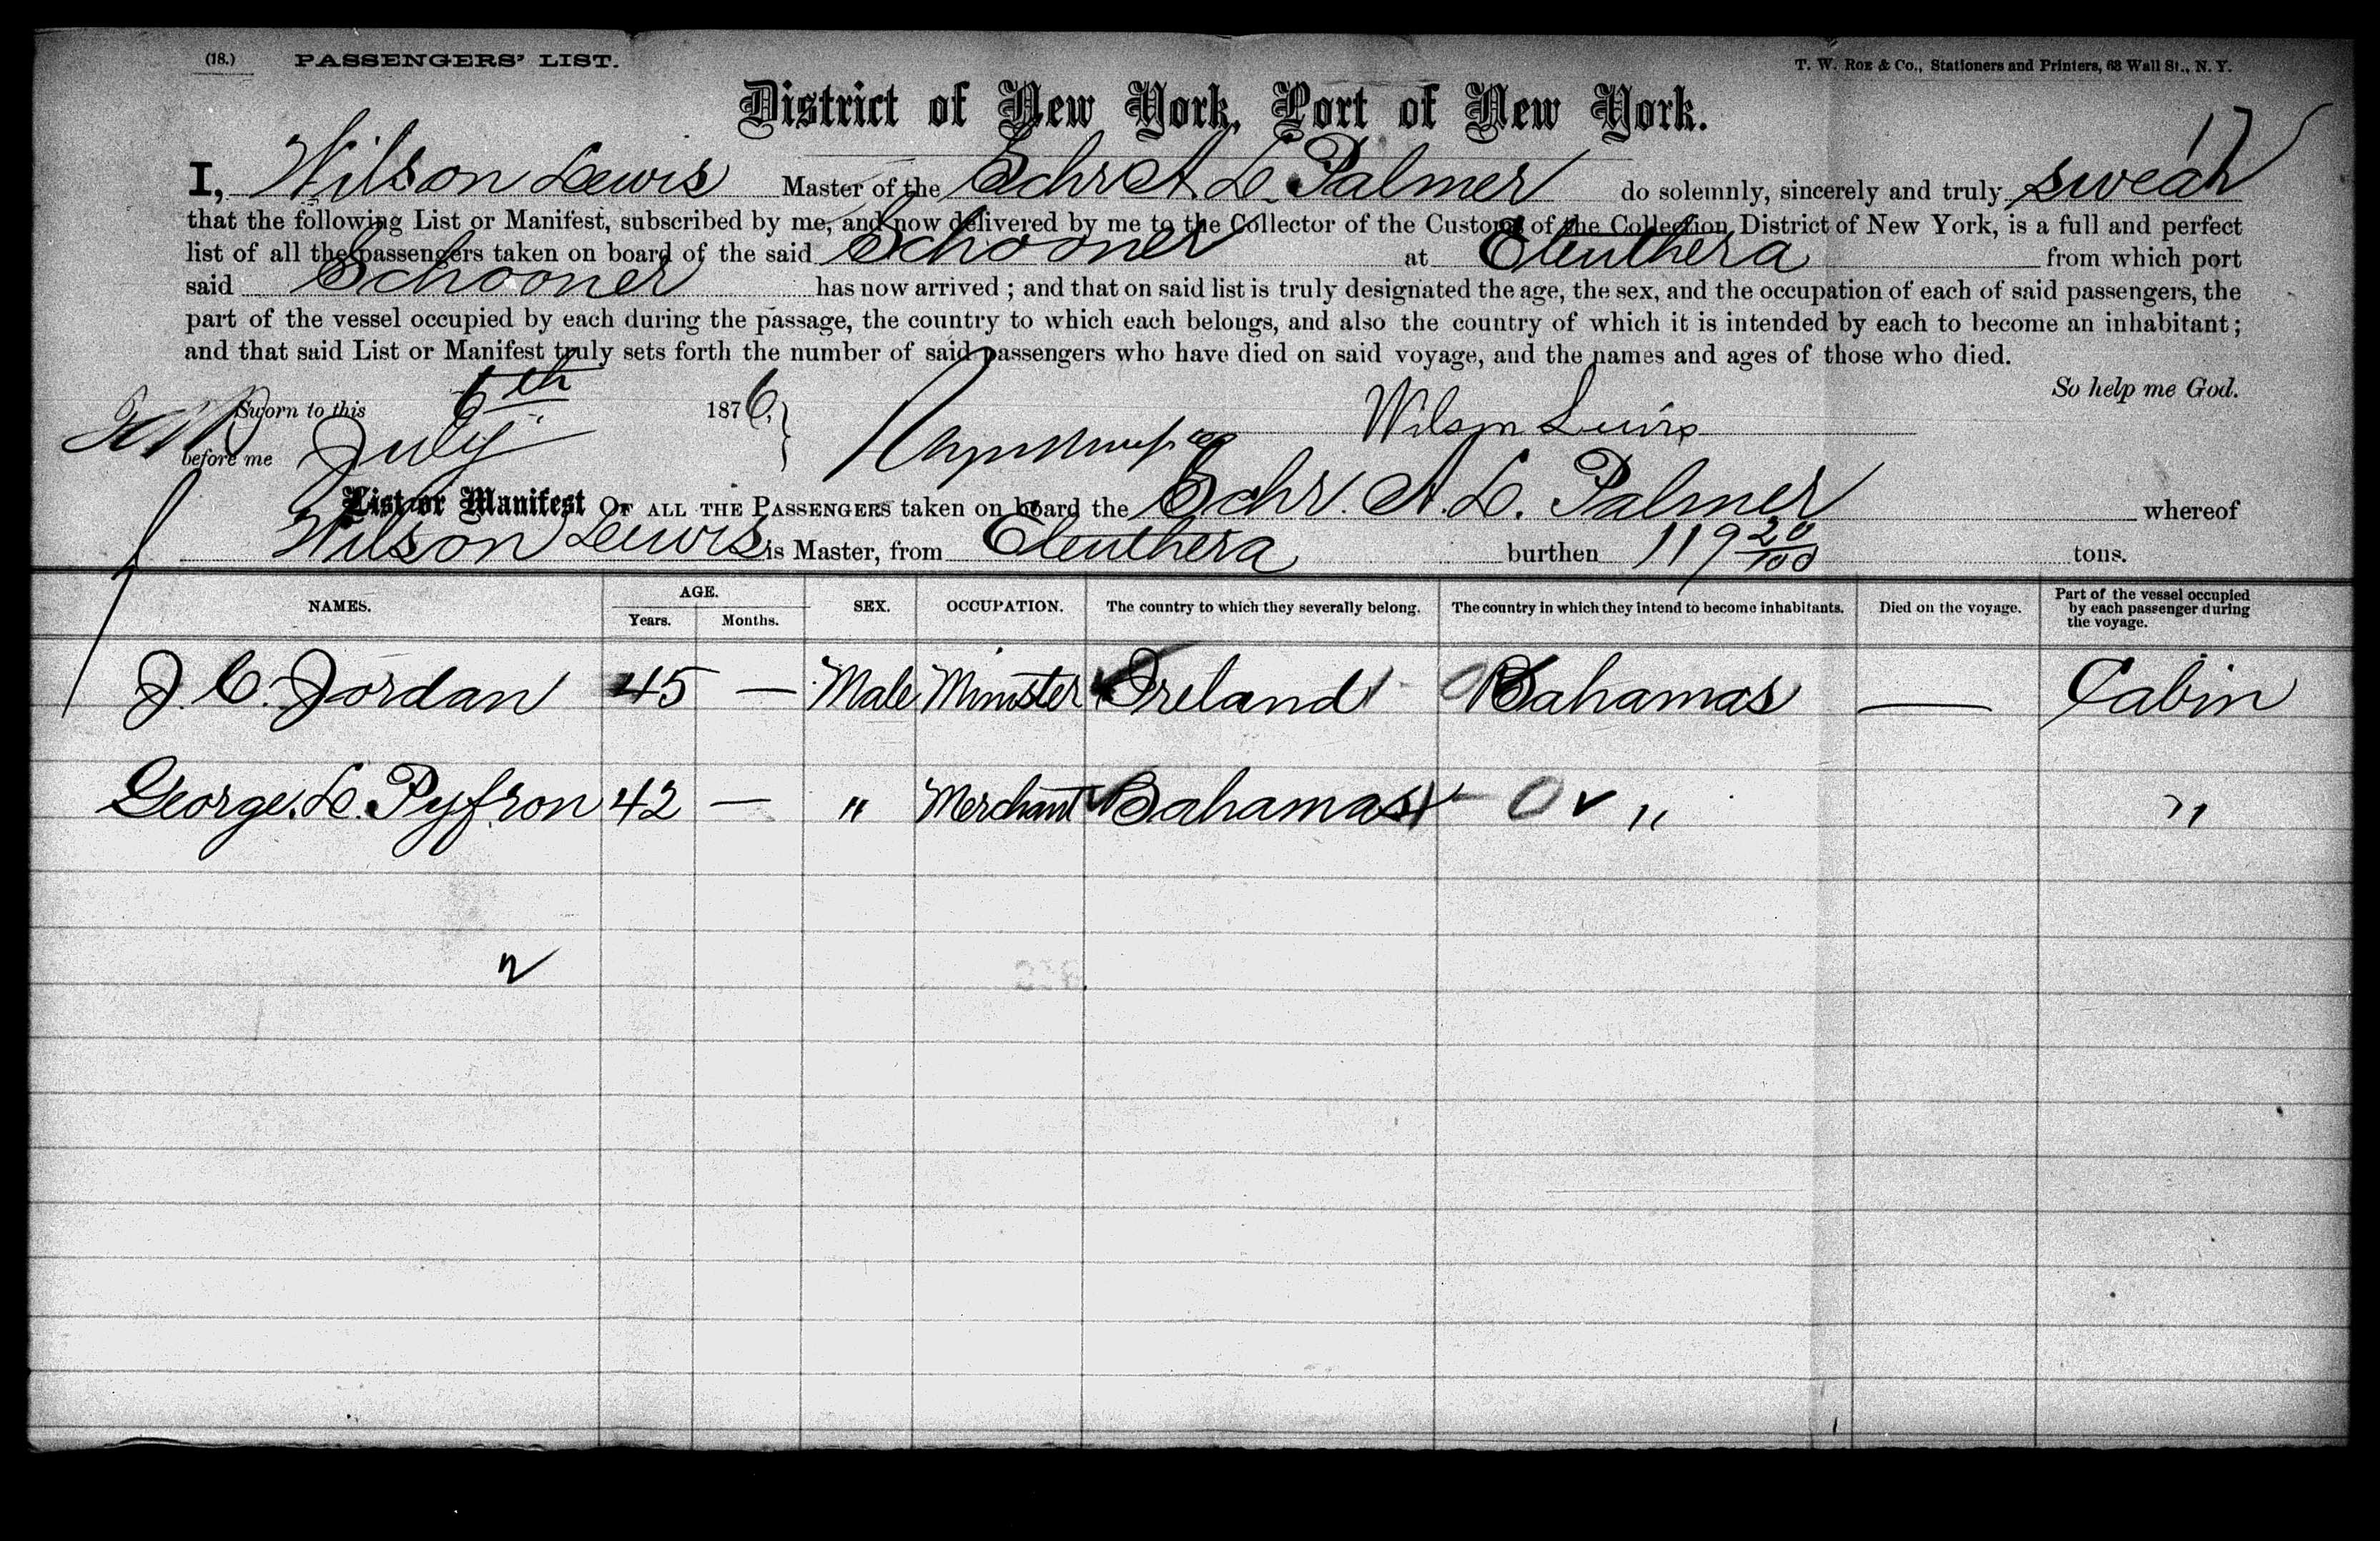 (18.) PASSENGERS' LIST. T. W. Roe & Co., Stationers and Printers, 68 Wall St., N. Y.
District of New York, Port of New York.
17
I, Wilson Lewis Master of the Schr A. L. Palmer do solemnly, sincerely and truly swear
that the following List or Manifest, subscribed by me, and now delivered by me to the Collector of the Customs of the Collection District of New York, is a full and perfect
list of all the passengers taken on board of the said Schooner at Eleuthera from which port
said Schooner has now arrived ; and that on said list is truly designated the age, the sex, and the occupation of each of said passengers, the
part of the vessel occupied by each during the passage, the country to which each belongs, and also the country of which it is intended by each to become an inhabitant;
and that said List or Manifest truly sets forth the number of said passengers who have died on said voyage, and the names and ages of those who died.
So help me God.
Sworn to this 6th 1876.
July Wilson Lewis
before me
List or Manifest OF ALL THE PASSENGERS taken on board the Schr. A. L. Palmer whereof
Wilson Lewis is Master, from Eleuthera burthen 119 20/100 tons.
NAMES. AGE. Years. Months. SEX. OCCUPATION. The country to which they severally belong. The country in which they intend to become inhabitants. Died on the voyage. Part of the vessel occupied by each passenger during the voyage.
J. C. Jordan 45 — Male Minister Ireland Bahamas — Cabin
George. L. Pyfron 42 — " Merchant Bahamas 0 " "
2